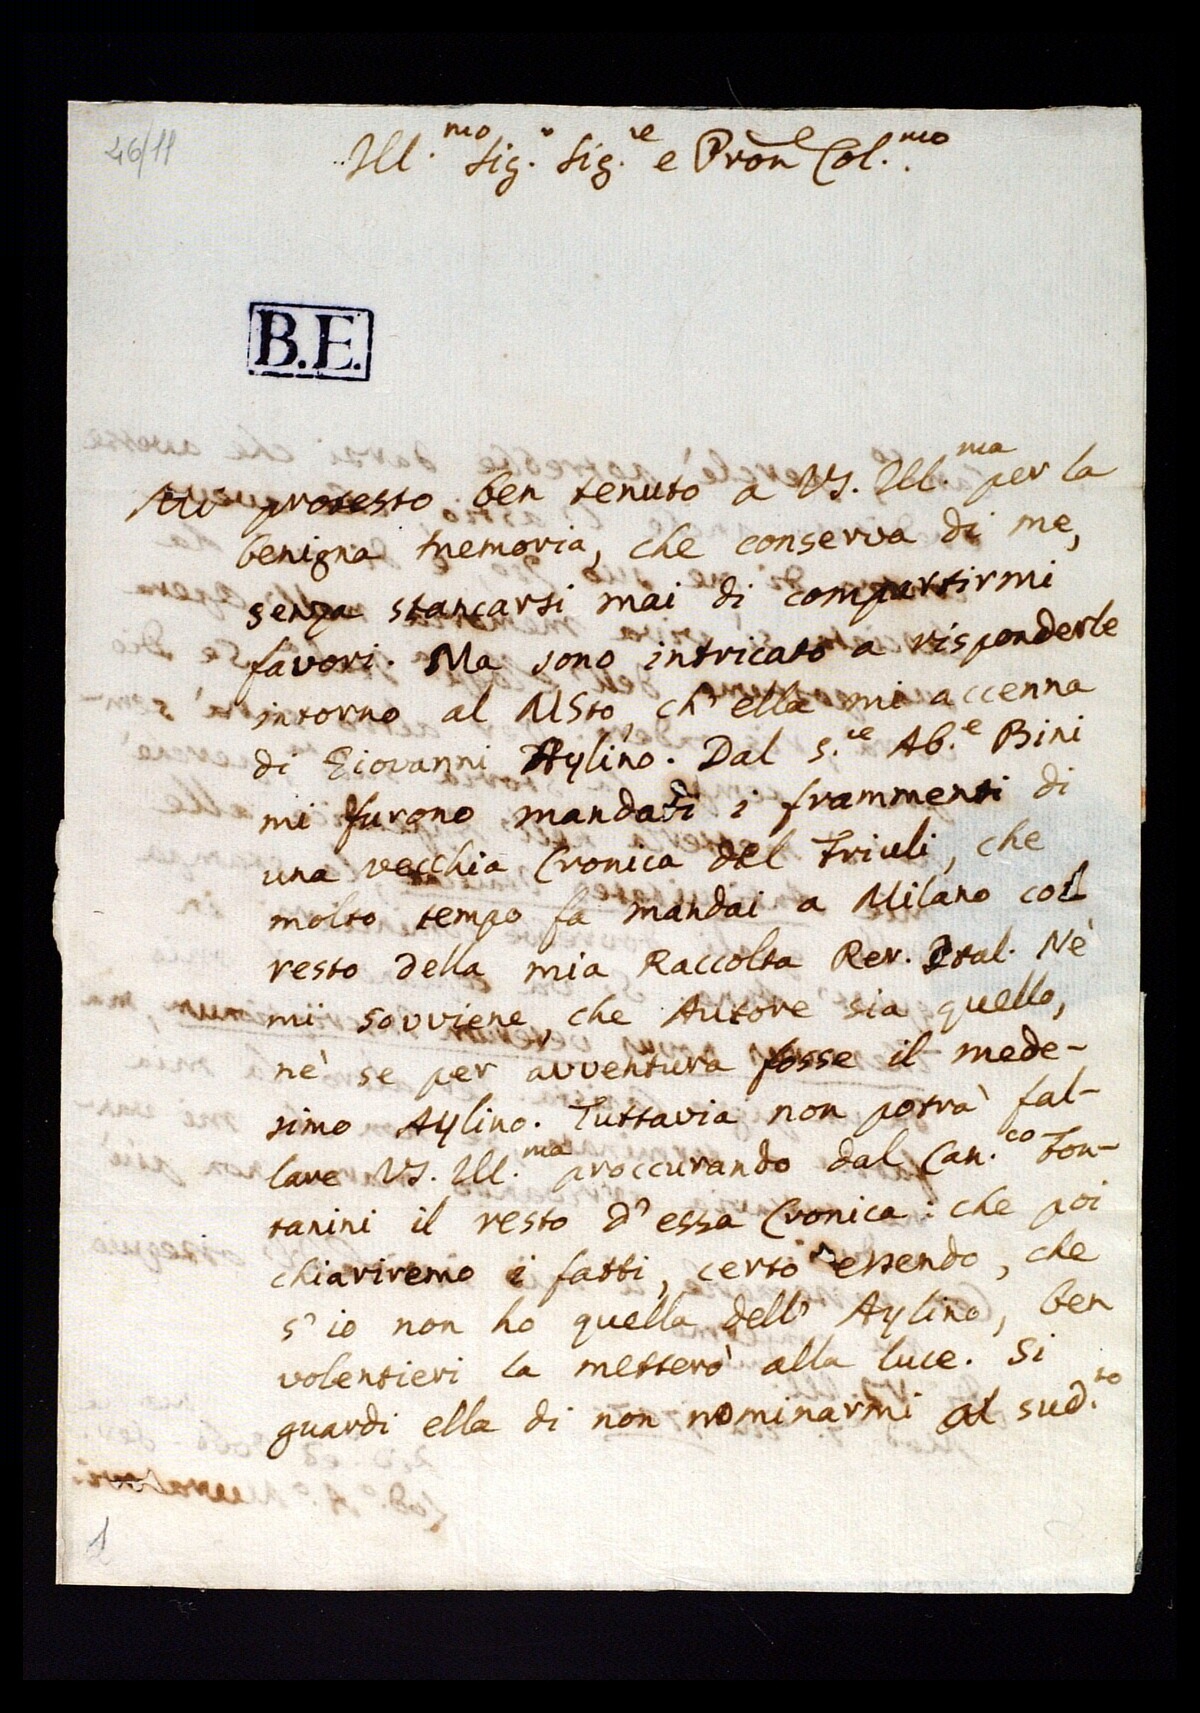 46/11
Ill.mo Sig.r Sig.re e Pron Col.mo
B.E.
Mi protesto ben tenuto a VS. Ill.ma per la
benigna memoria, che conserva di me,
senza stancarsi mai di compartirmi
favori. Ma sono intricato a risponderle
intorno al MSto, ch'ella mi accenna
di Giovanni Aylino. Dal S.re Ab.e Bini
mi furono mandati i frammenti di
una vecchia Cronica del Friuli, che
molto tempo fa mandai a Milano col
resto della mia Raccolta Rer. Ital. Nè
mi sovviene, che Autore sia quello,
nè se per avventura fosse il mede-
simo Aylino. Tuttavia non potrà fal-
lare VS. Ill.ma proccurando dal Can.co Fon-
tanini il resto d'essa Cronica: che poi
chiariremo i fatti, certo essendo, che
s'io non ho quella dell'Aylino, ben
volentieri la metterò alla luce. Si
guardi ella di non nominarmi al sud.to
1